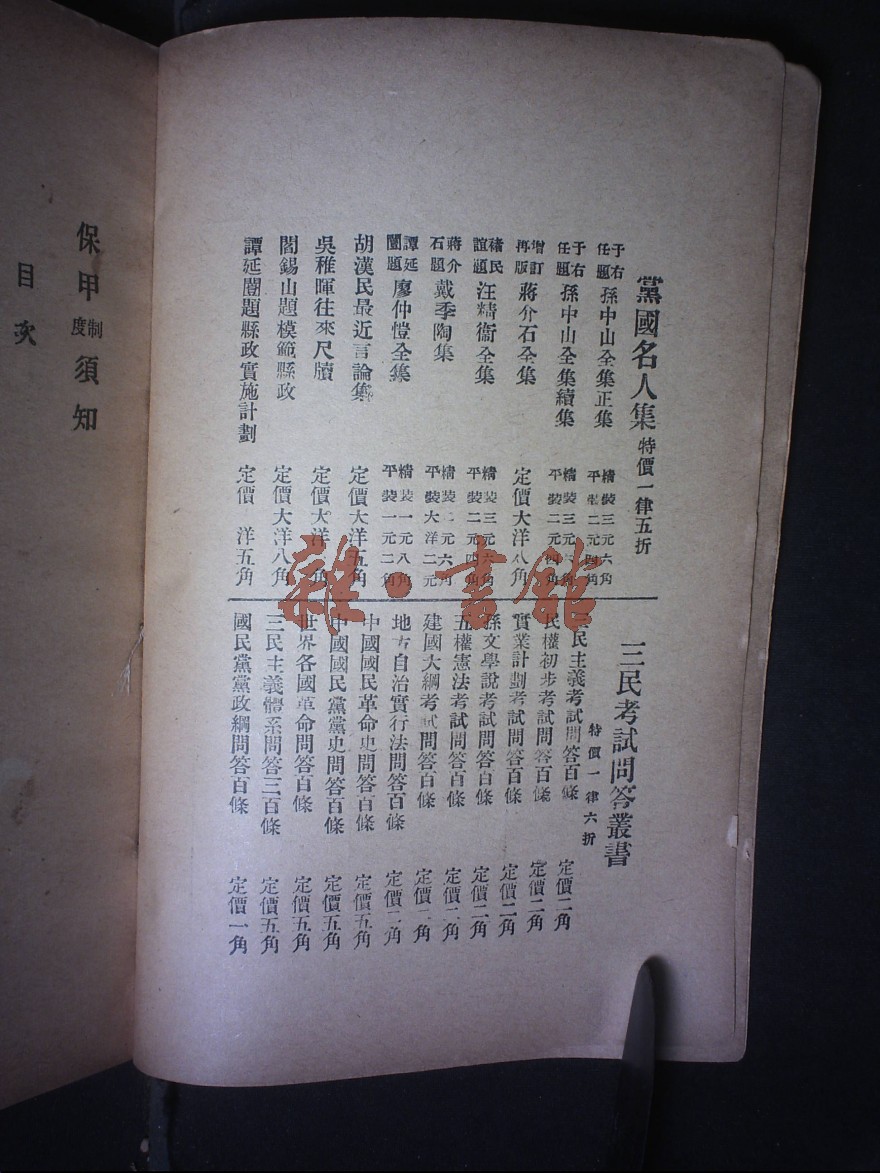 黨國名人集 特價一律五折
于右任題 孫中山全集正集 精裝三元六角 平裝二元四角
于右任題 孫中山全集續集 精裝三元六角 平裝二元四角
增訂再版 蔣介石全集 定價大洋八角
褚民誼題 汪精衞全集 精裝三元六角 平裝二元四角
蔣介石題 戴季陶集 精裝二元六角 平裝大洋二元
譚延闓題 廖仲愷全集 精裝一元八角 平裝一元二角
胡漢民最近言論集 定價大洋五角
吳稚暉往來尺牘 定價大洋 角
閻錫山題模範縣政 定價大洋八角
譚延闓題縣政實施計劃 定價 洋五角
三民考試問答叢書 特價一律六折
三民主義考試問答百條 定價二角
民權初步考試問答百條 定價二角
實業計劃考試問答百條 定價二角
孫文學說考試問答百條 定價二角
五權憲法考試問答百條 定價二角
建國大綱考試問答百條 定價二角
地方自治實行法問答百條 定價二角
中國國民革命史問答百條 定價五角
中國國民黨黨史問答百條 定價五角
世界各國革命問答百條 定價五角
三民主義體系問答三百條 定價五角
國民黨黨政綱問答百條 定價一角
保甲制度須知
目次
雜·書館